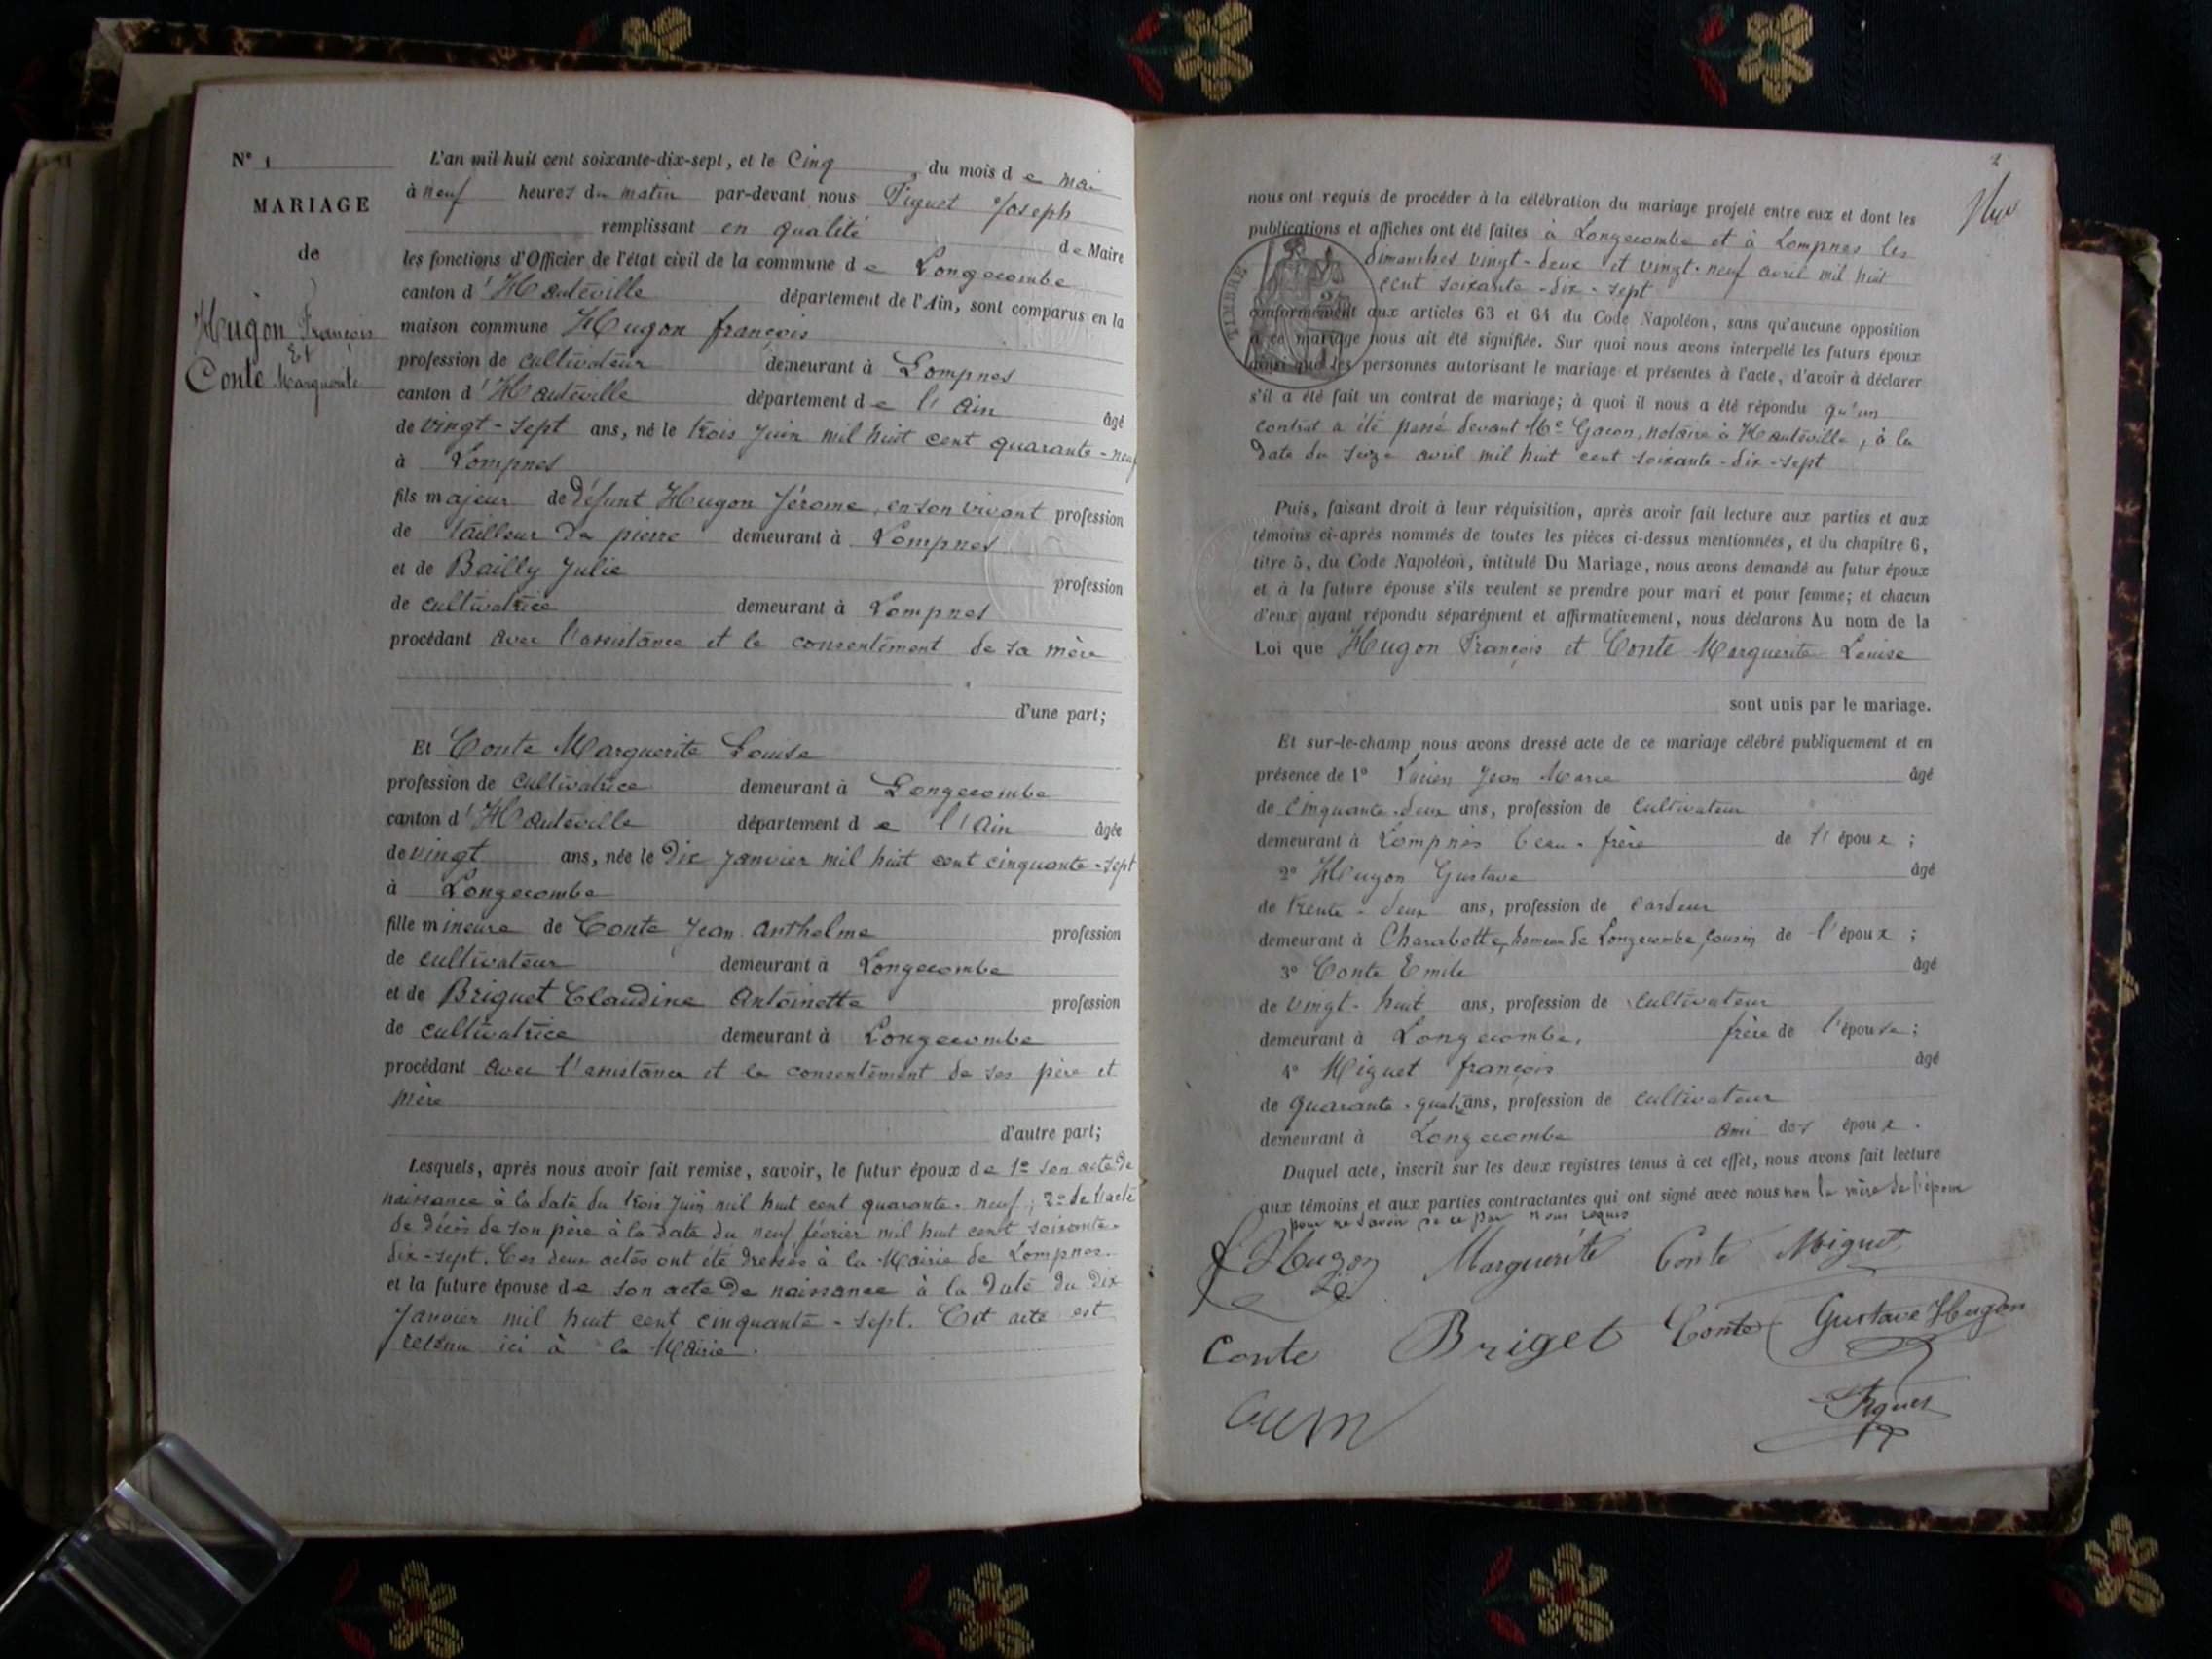 N° 1
MARIAGE
de
Hugon François
Et
Conte Marguerite
L'an mil huit cent soixante-dix-sept, et le Cinq du mois de mai
à neuf heures du matin par-devant nous Piguet Joseph
remplissant en qualité de Maire
les fonctions d'Officier de l'état civil de la commune de Longecombe
canton d'Hauteville département de l'Ain, sont comparus en la
maison commune Hugon françois
profession de cultivateur demeurant à Lompnes
canton d'Hauteville département de l'Ain âgé
de vingt-sept ans, né le trois Juin mil huit cent quarante-neuf
à Lompnes
fils majeur de défunt Hugon Jérome, en son vivant profession
de tailleur de pierre demeurant à Lompnes
et de Bailly Julie profession
de cultivatrice demeurant à Lompnes
procédant avec l'assistance et le consentement de sa mère
d'une part;
Et Conte Marguerite Louise
profession de cultivatrice demeurant à Longecombe
canton d'Hauteville département de l'Ain âgée
de vingt ans, née le Dix Janvier mil huit cent cinquante-sept
à Longecombe
fille mineure de Conte Jean Anthelme profession
de cultivateur demeurant à Longecombe
et de Briguet Claudine Antoinette profession
de cultivatrice demeurant à Longecombe
procédant avec l'assistance et le consentement de ses père et
mère
d'autre part;
Lesquels, après nous avoir fait remise, savoir, le futur époux de 1° son acte de
naissance à la date du trois Juin mil huit cent quarante-neuf; 2° de l'acte
de décès de son père à la date du neuf février mil huit cent soixante-
dix-sept. Ces deux actes ont été dressés à la Mairie de Lompnes.
et la future épouse de son acte de naissance à la date du dix
Janvier mil huit cent cinquante-sept. Cet acte est
retenu ici à la Mairie.
2
nous ont requis de procéder à la célébration du mariage projeté entre eux et dont les
publications et affiches ont été faites à Longecombe et à Lompnes les
dimanches vingt-deux et vingt-neuf avril mil huit
cent soixante-dix-sept
TIMBRE
conformément aux articles 63 et 64 du Code Napoléon, sans qu'aucune opposition
à ce mariage nous ait été signifiée. Sur quoi nous avons interpellé les futurs époux
ainsi que les personnes autorisant le mariage et présentes à l'acte, d'avoir à déclarer
s'il a été fait un contrat de mariage; à quoi il nous a été répondu qu'un
contrat a été passé devant Me Gacon, notaire à Hauteville, à la
date du seize avril mil huit cent soixante-dix-sept
Puis, faisant droit à leur réquisition, après avoir fait lecture aux parties et aux
témoins ci-après nommés de toutes les pièces ci-dessus mentionnées, et du chapitre 6,
titre 5, du Code Napoléon, intitulé Du Mariage, nous avons demandé au futur époux
et à la future épouse s'ils veulent se prendre pour mari et pour femme; et chacun
d'eux ayant répondu séparément et affirmativement, nous déclarons Au nom de la
Loi que Hugon François et Conte Marguerite Louise
sont unis par le mariage.
Et sur-le-champ nous avons dressé acte de ce mariage célébré publiquement et en
présence de 1° Jean Marie âgé
de Cinquante-deux ans, profession de Cultivateur
demeurant à Lompnes beau-frère de l'époux;
2° Hugon Gustave âgé
de trente-deux ans, profession de Cardeur
demeurant à Charabotte, hameau de Longecombe, Cousin de l'époux;
3° Conte Emile âgé
de vingt-huit ans, profession de Cultivateur
demeurant à Longecombe, frère de l'épouse;
4° Miguet françois âgé
de quarante-quatre ans, profession de cultivateur
demeurant à Longecombe ami des époux.
Duquel acte, inscrit sur les deux registres tenus à cet effet, nous avons fait lecture
aux témoins et aux parties contractantes qui ont signé avec nous non la mère de l'époux
pour ne savoir de ce par nous requis
Hugon Marguerite Conte Miguet
Conte Briget Conte Gustave Hugon
Piguet